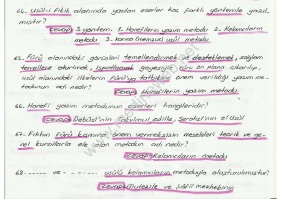 64. Usûl-i Fıkıh alanında yazılan eserler kaç farklı yöntemle yazılmıştır?
Cevap 3 yöntem. 1. Hanefilerin yazım metodu 2. Kelamcıların metodu 3. karma (memzuc) usûl metodu
65. Fürû alanındaki görüşleri temellendirmek ve desteklemek, sağlam
temellere oturtmak, gayesiyle fürû ön plana çıkarılıp,
usûl alanındaki ilkelerin fürû'ya tatbikine önem verildiği yazım metodunun adı nedir?
Cevap Hanefilerin yazım metodu
66. Hanefi yazım metodunun eserleri hangileridir?
Cevap Debûsî'nin Serahsî'nin el Usûl
67. Fıkhın fürû kısmına önem vermeksizin meseleleri teorik ve genel kurallarla ele alan metodun adı nedir?
Cevap Kelamcıların metodu
68. ------ ve ------ usûlü kelamcıların metoduyla oluşturulmuştur?
Cevap Mutezile ve Şâfiî mezhebinin